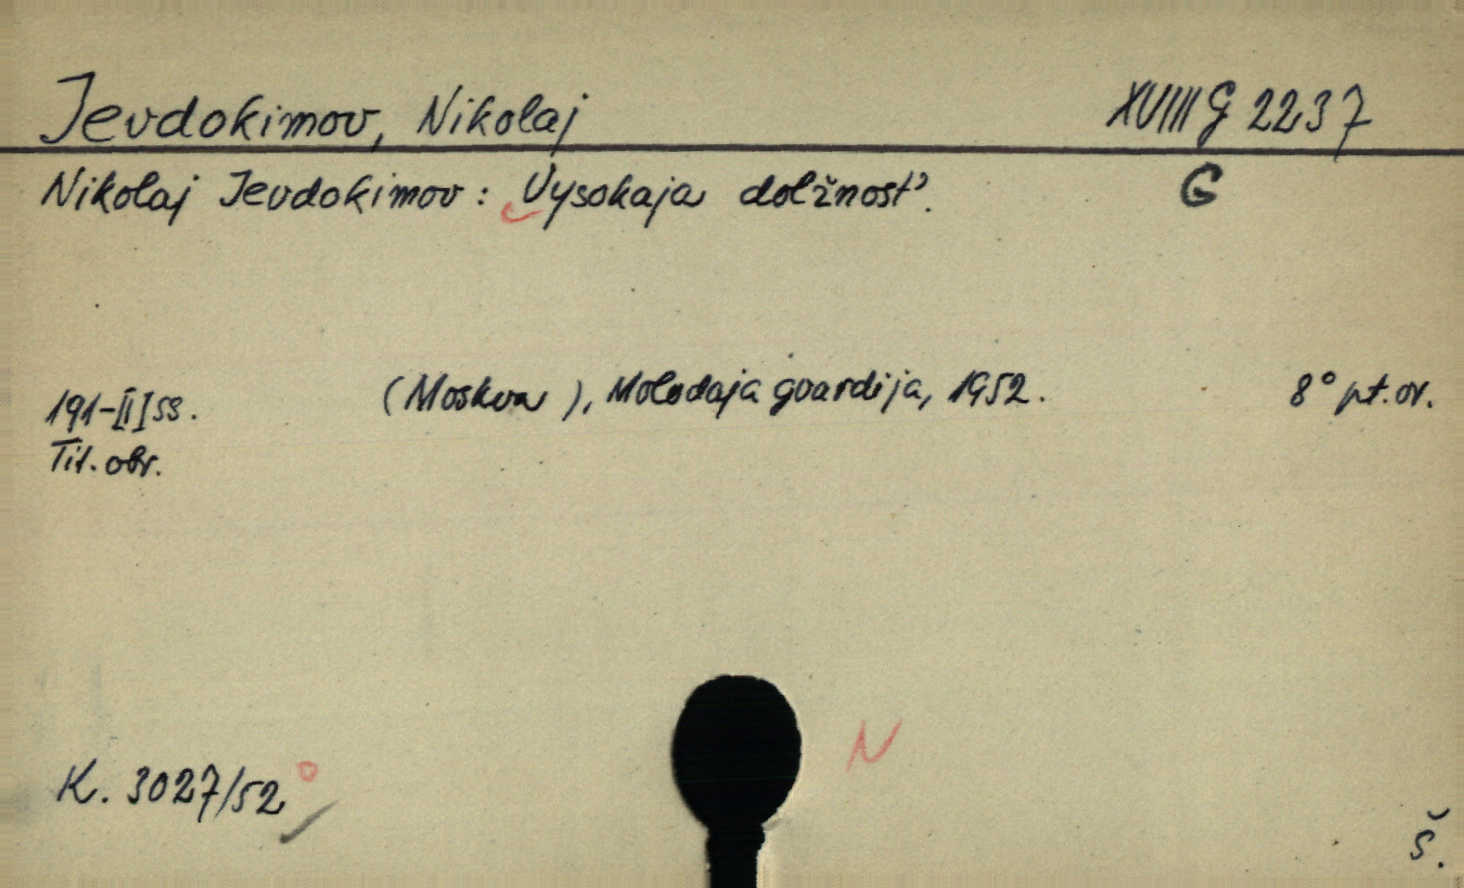 Jevdokimov, Nikolaj XVIII G 2237
Nikolaj Jevdokimov: Vysokaja dolžnost'. G
191-[I] ss. (Moskva), Molodaja gvardija, 1952. 8° pt. or.
Tit. obr.
N
K. 3027/52
š.